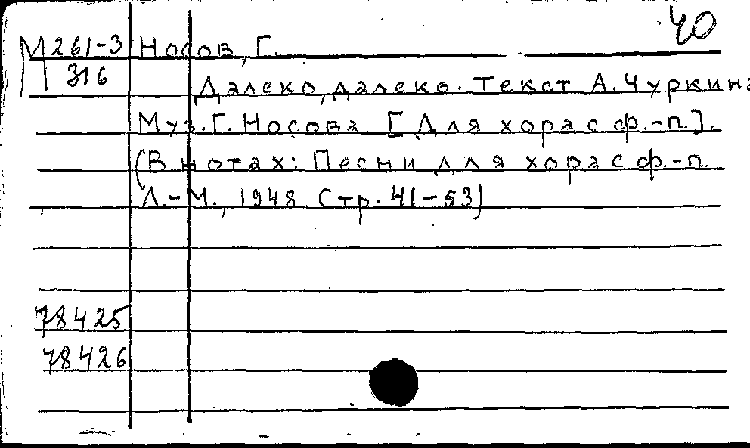 40
М 261-3 Носов, Г.
316
Далеко, далеко. Текст А. Чуркина
Муз. Г. Носова [Для хора с ф.-п.].
(В нотах: Песни для хора с ф.-п.
Л.-М., 1948 Стр. 41-53)
78425
78426